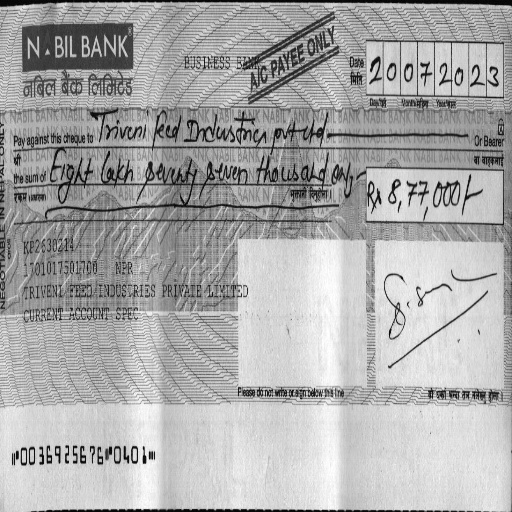 NABIL BANK
नबिल बैंक लिमिटेड
BUSINESS BANK
A/C PAYEE ONLY
Date
मिति
20072023
Day/गते Month/महिना Year/साल
Pay against this cheque to Triveni feed Industries pvt ltd Or Bearer
श्री वा वाहकलाई
the sum of Eight lakh seventy seven thousand only
रकम (अक्षरमा) भुक्तानी दिनुहोस् ।
Rs 8,77,000/-
NEGOTIABLE IN NEPAL ONLY
KP2630214
1701017501706 NPR
TRIVENI FEED INDUSTRIES PRIVATE LIMITED
CURRENT ACCOUNT SPEC
Please do not write or sign below this line
⑈0036925676⑈0401⑈